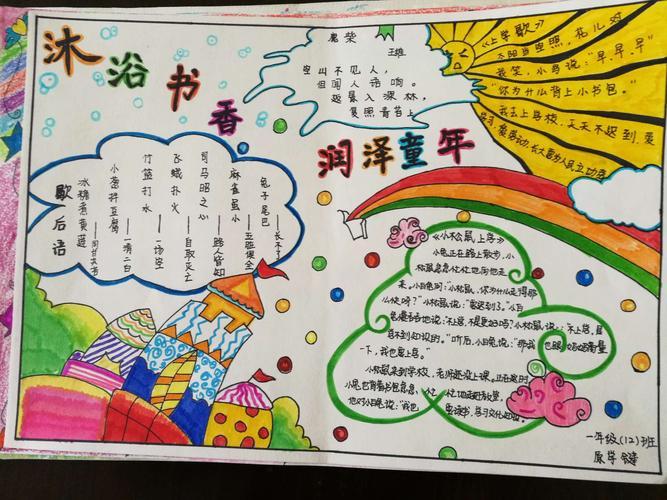 沐浴书香
润泽童年
鹿柴
王维
空山不见人，
但闻人语响。
返景入深林，
复照青苔上
《上学歌》
太阳当空照，花儿对
我笑，小鸟说："早、早、早
你为什么背上小书包。"
我去上学校，天天不迟到，爱
学习，爱劳动，长大要为人民立功劳
歇后语
兔子尾巴——长不了
麻雀虽小——五脏俱全
司马昭之心——路人皆知
飞蛾扑火——自取灭亡
竹篮打水——一场空
小葱拌豆腐——一清二白
冰糖煮黄莲——同甘共苦
《小松鼠上学》
小兔正在路上散步，小
松鼠急急忙忙地向他走
来。小白兔问："小松鼠，你为什么走得那
么快呀？"小松鼠说："要迟到了。"小白
兔说："不上学，
学不到知识的。"听后，小白兔说："那我
一下，我也要上学。"
小松鼠来到学校，老师还没上课。正在这时
小兔也背着书包急急
他对小白兔说："我也
要读书，学习文化知识。"
一年级(12)班
原学